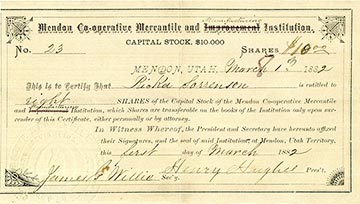 Manufacturing
Mendon Co-operative Mercantile and Improvement Institution.
CAPITAL STOCK, $10.000
No. 23 SHARES $10 00
MENDON, UTAH, March 1st 1882
This is to Certify That Riska Sorrenson is entitled to
eight SHARES of the Capital Stock of the Mendon Co-operative Mercantile
and Manufacturing Institution, which Shares are transferable on the books of the Institution only upon sur-
render of this Certificate, either personally or by attorney.
In Witness Whereof, the President and Secretary have hereunto affixed
their Signatures, and the seal of said Institution, at Mendon, Utah Territory,
this first day of March 1882
James G. Willie Sec'y. Henry Hughes Pres't.